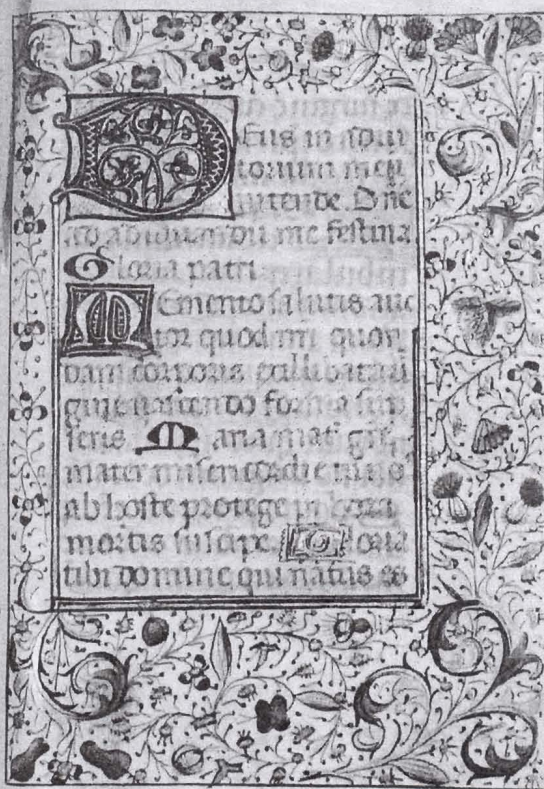 Deus in adiu
torium meū
intende. Dñe
ad adiuvandū me festina
Gloria patri
Memento salutis auc
tor quod nr̄i quon
dam corporis ex illibata
virgine nascendo formā sūp
seris Maria mat̄ grē
mater misericordie tu nos
ab hoste protege
mortis suscipe Gloria
tibi domine qui natus es